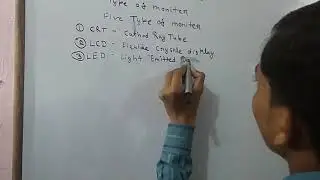 Type of moniter
Five Type of moniter
① CRT - Cathod Ray Tube
② LCD - Display
③ LED - Light Emitted